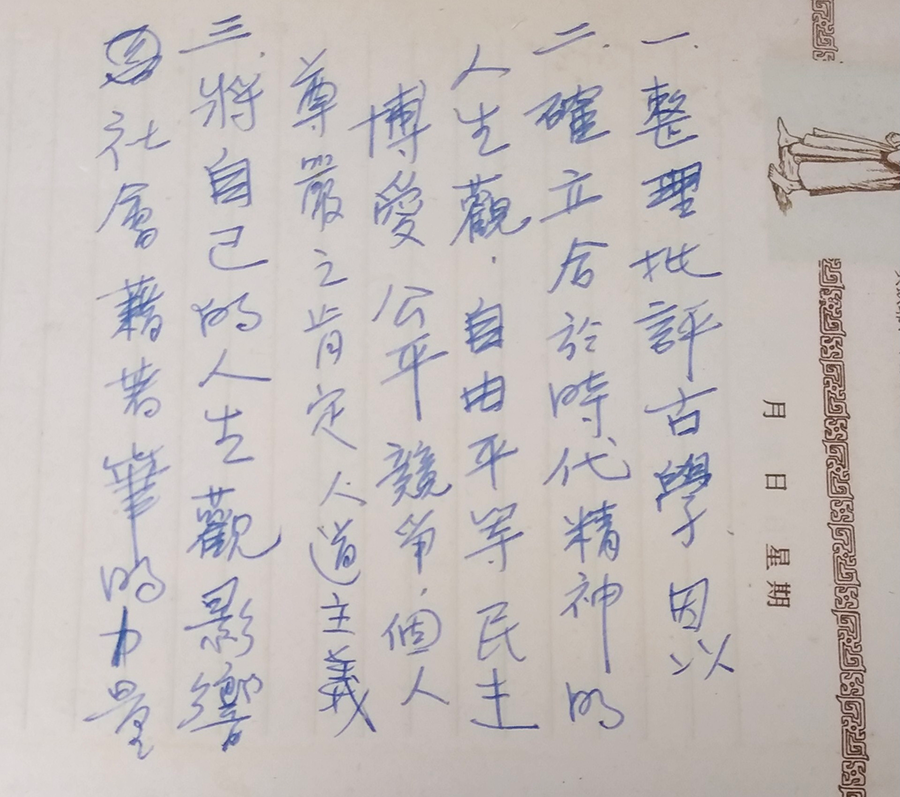 一.整理批評古學因以
二.確立合於時代精神的
人生觀.自由平等民主
博愛公平競爭.個人
尊嚴之肯定人道主義
三.將自己的人生觀影響
社會藉著筆的力量
月 日 星期